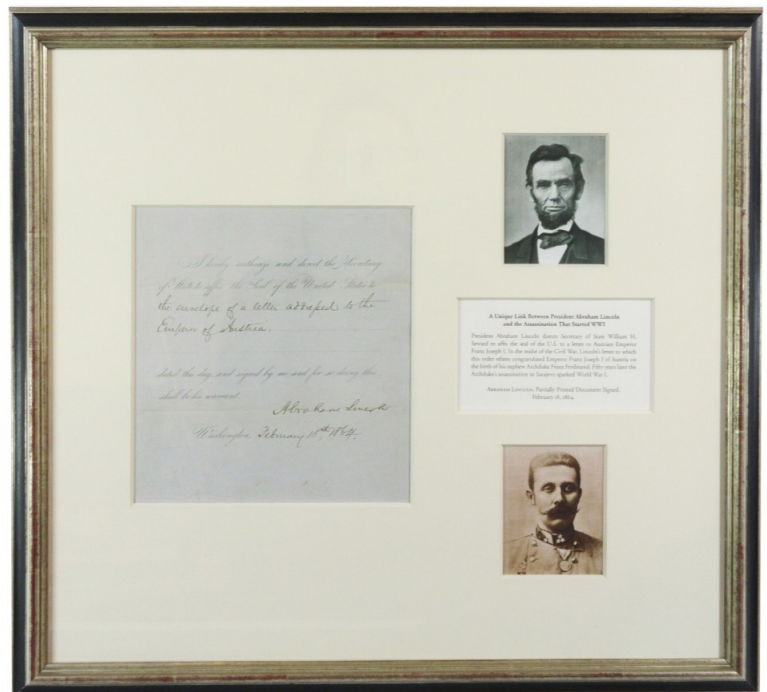 I hereby authorize and direct the Secretary
of State to affix the Seal of the United States to
the envelope of a letter addressed to the
Emperor of Austria,
dated this day, and signed by me and for so doing this
shall be his warrant.
Abraham Lincoln
Washington, February 18th 1864.
A Unique Link Between President Abraham Lincoln
and the Assassination That Started WWI
President Abraham Lincoln directs Secretary of State William H.
Seward to affix the seal of the U.S. to a letter to Austrian Emperor
Franz Joseph I. In the midst of the Civil War, Lincoln's letter to which
this order relates congratulated Emperor Franz Joseph I of Austria on
the birth of his nephew Archduke Franz Ferdinand. Fifty years later the
Archduke's assassination in Sarajevo sparked World War I.
Abraham Lincoln, Partially Printed Document Signed,
February 18, 1864.